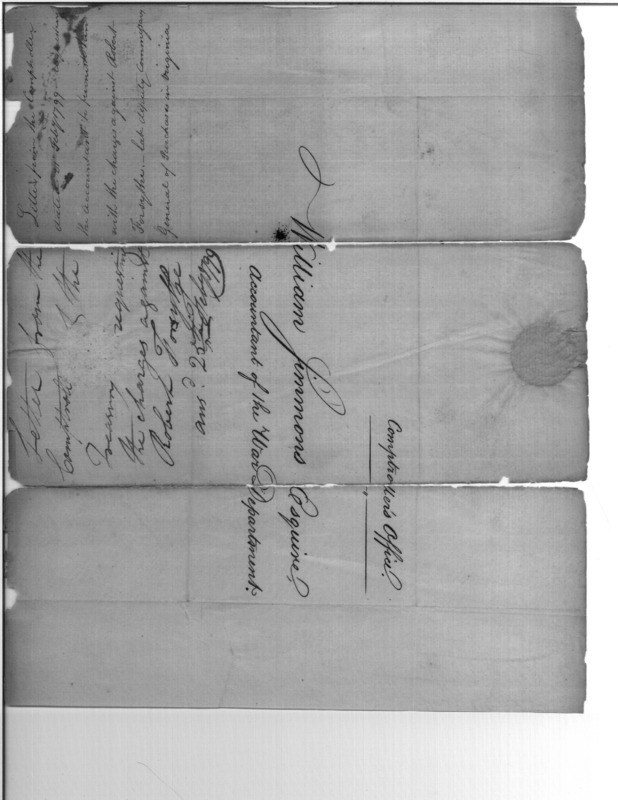 Comptroller's Office.
William Simmons Esquire,
Accountant of the War Department.
Letter from the Comptroller
dated Feby 1799 requesting
the accountant to furnish him
with the charges against Robert
Forsythe late deputy Commissary
General of Purchases in Virginia
Letter from the
Comptroller of the
Treasury requesting
the charges against
Robert Forsythe
ans. 27